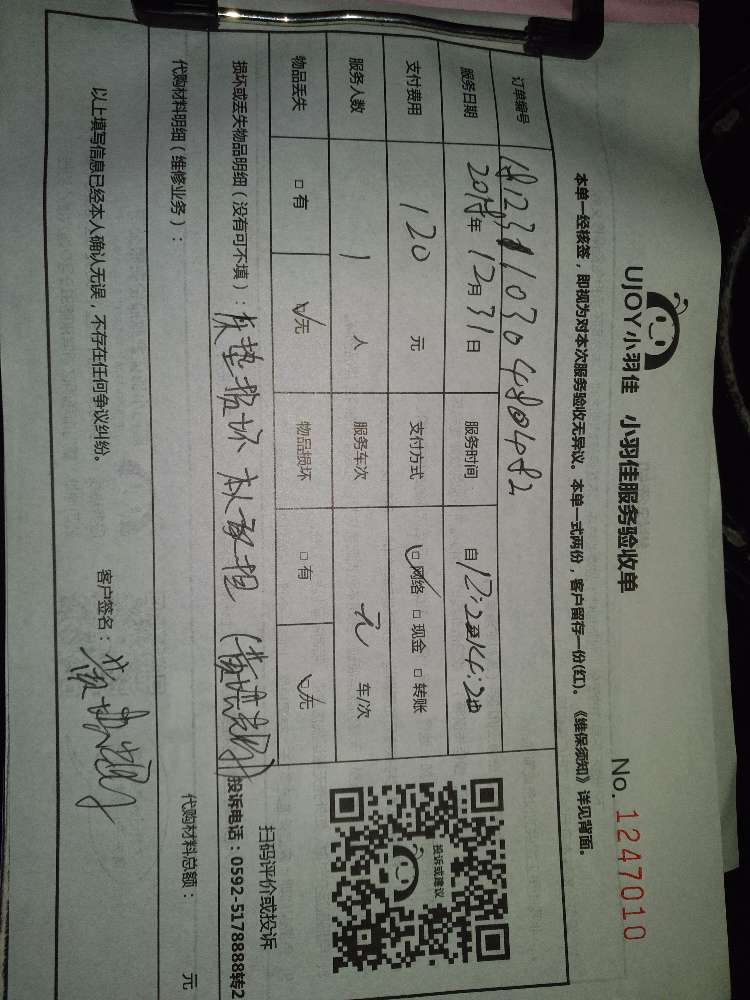 UJOY小羽佳 小羽佳服务验收单
No. 1247010
本单一经核签,即视为对本次服务验收无异议。本单一式两份,客户留存一份(红)。《维保须知》详见背面。
订单编号
服务日期 年 12月 31日 服务时间 自
支付费用 120 元 支付方式 ☑网络 □现金 □转账
服务人数 1 人 服务车次 无 车/次
物品丢失 □有 ☑无 物品损坏 □有 ☑无
投诉或建议
扫码评价或投诉
投诉电话:0592-5178888转2
损坏或丢失物品明细(没有可不填):床垫损坏本人承担
代购材料明细(维修业务): 代购材料总额: 元
以上填写信息已经本人确认无误,不存在任何争议纠纷。 客户签名: